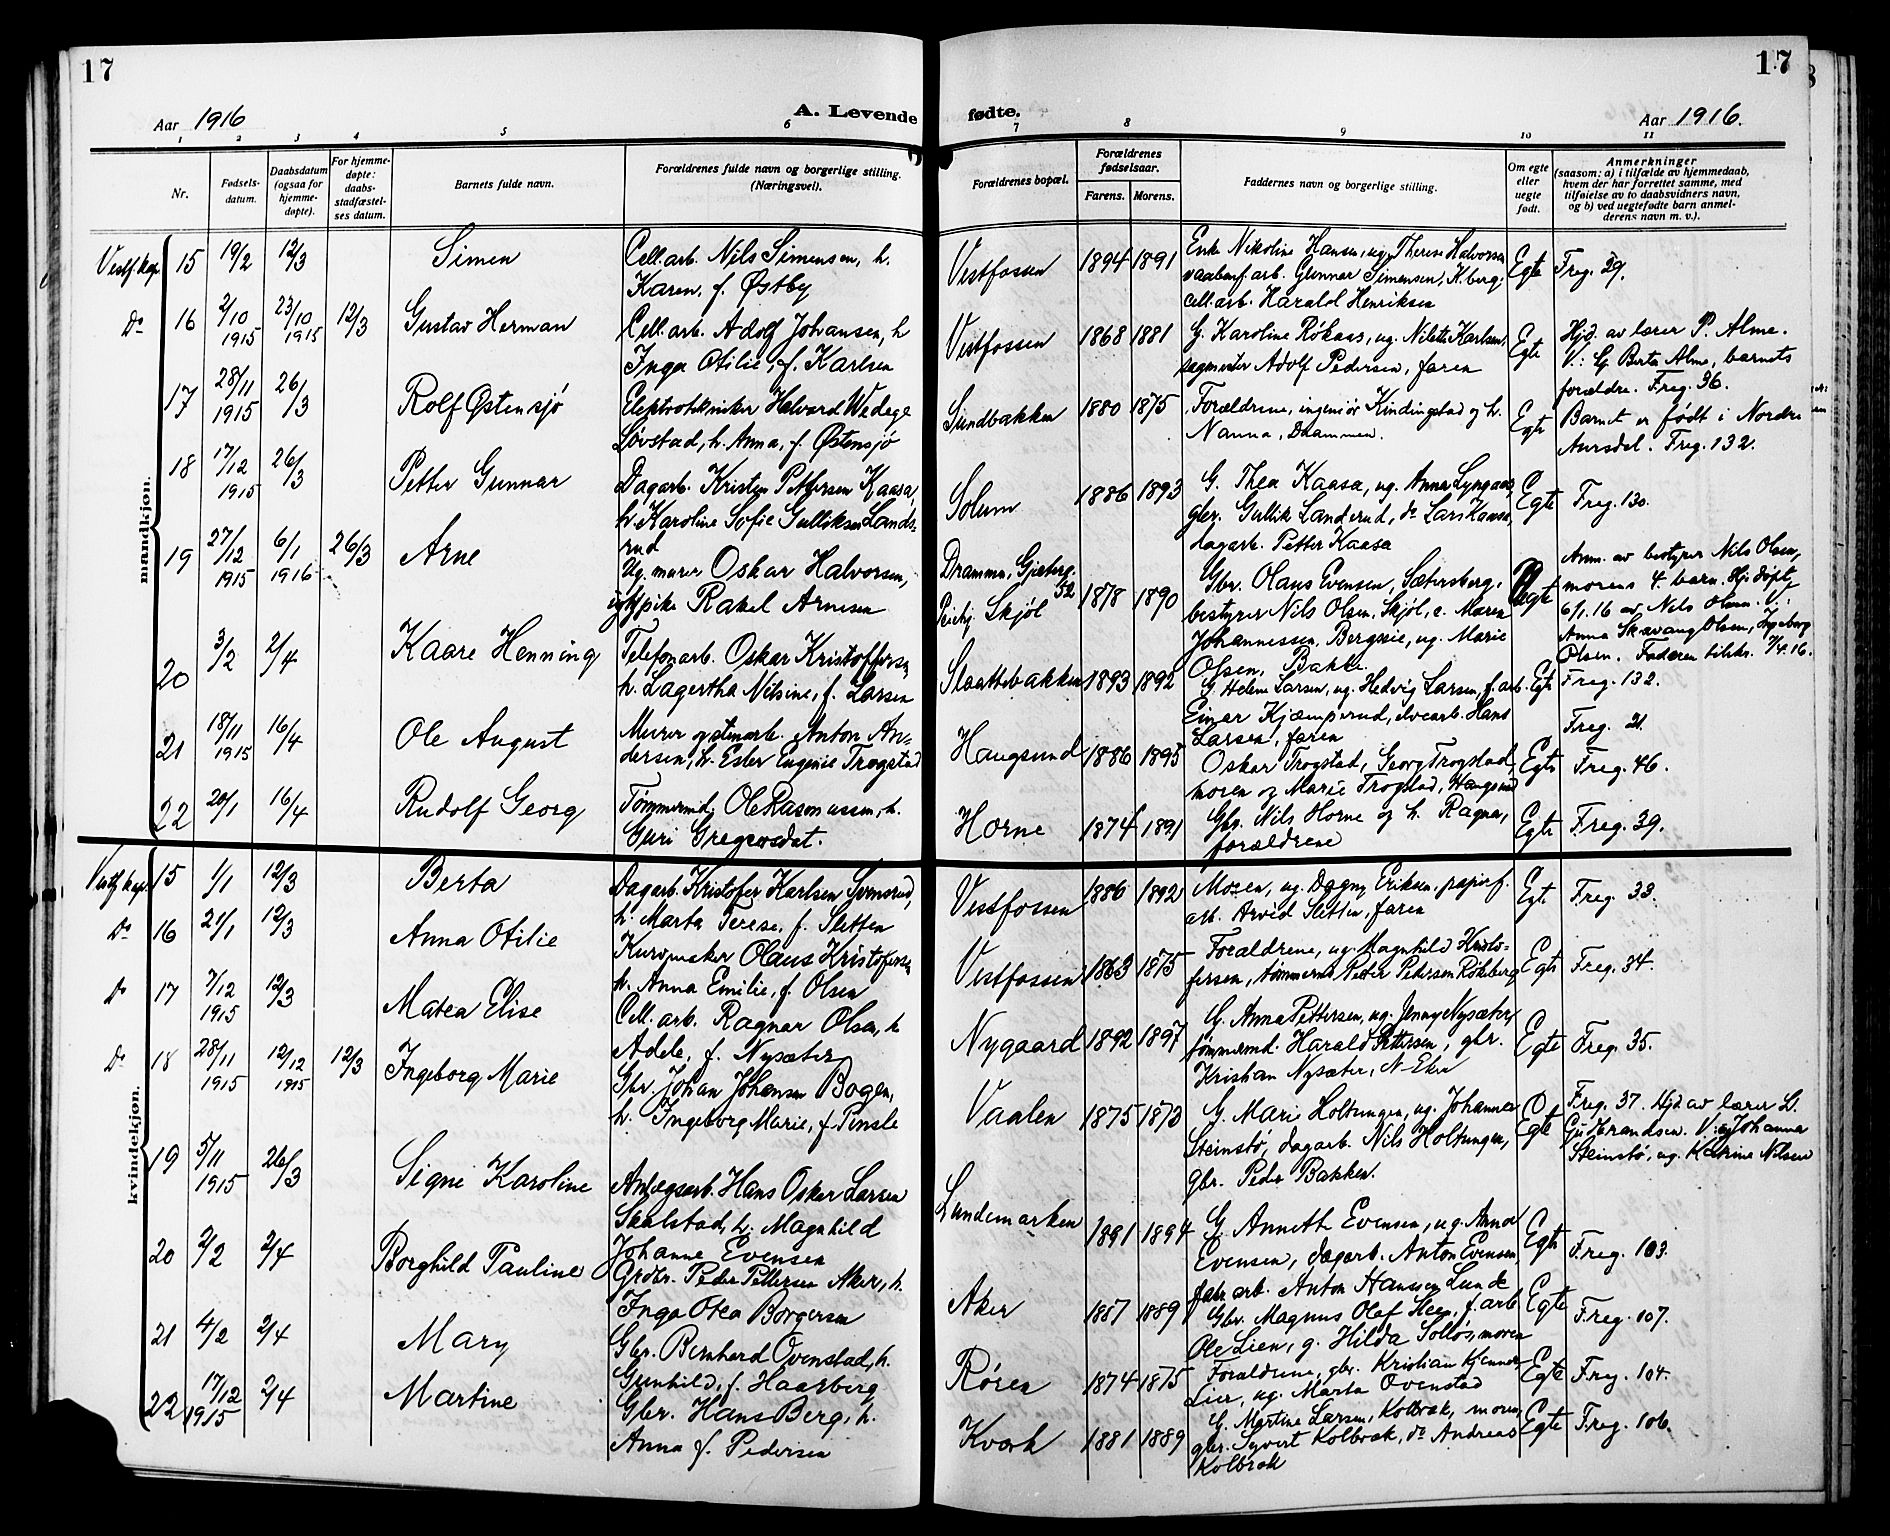 17
17
Aar 1916
A. Levende fødte.
Aar 1916.
1 2 3 4 5 6 7 8 9 10 11
Nr.
Fødsels-
datum.
Daabsdatum
(ogsaa for
hjemme-
døpte).
For hjemme-
døpte:
daabs-
stadfæstel-
ses datum.
Barnets fulde navn.
Forældrenes fulde navn og borgerlige stilling.
(Næringsvei).
Forældrenes bopæl.
Forældrenes
fødselsaar.
Farens. Morens.
Faddernes navn og borgerlige stilling.
Om egte
eller
uegte
født.
Anmerkninger
(saasom: a) i tilfælde av hjemmedaab,
hvem der har forrettet samme, med
tilføielse av to daabsvidners navn,
og b) ved uegtefødte barn anmel-
derens navn m. v.).
mandkjøn.
Vestf. kap. 15 19/2 12/3 Simen
Cell. arb. Nils Simensen, h.
Karen, f. Østby
Vestfossen 1894 1891
Enke Nikoline Hansen, ug. Therese Halvorsen
vaabenf. arb. Gunnar Simensen, K.berg,
cell. arb. Harald Henriksen
Egte Freg. 29.
Do 16 2/10 1915 23/10 1915 12/3 Gustav Herman
Cell. arb. Adolf Johansen, h
Inga Otilie, f. Karlsen
Vestfossen 1868 1881
G. Karoline Røkaas, ug. Nilette Karlsen,
sagmester Adolf Pedersen, faren
Egte
Hjd. av lærer P. Alme.
V: G Berta Alme, barnets
forældre. Freg. 36.
17 28/11 1915 26/3 Rolf Østensjø
Elektrotekniker Halvard Wedege
Løvstad, h. Anna, f. Østensjø
Sundbakken 1880 1875
Forældrene, ingeniør Kindingstad og h.
Nanna, Drammen.
Egte
Barnet er født i Nordre
Aursdal. Freg. 132.
18 17/12 1915 26/3 Petter Gunnar
Dagarb. Kristen Pettersen Kaasa,
h. Karoline Sofie Gulliksen Lands-
rud
Solum 1886 1893
G. Thea Kaasa, ug. Anna Lyngaas,
gbr. Gullik Landsrud, do Lars Kaasa,
dagarb. Petter Kaasa
Egte Freg. 130.
19 27/12 1915 6/1 1916 26/3 Arne
Ug. murer Oskar Halvorsen,
ug. pike Rakel Arnesen
Drammen, Gjeterg. 52
Skjøl 1878 1890
Gbr. Olaus Evensen, Sætersberg,
bestyrer Nils Olsen, Skjøl, e. Maren
Johannessen, Bergsvie, ug. Marie
Olsen, Bakke
Uegte
Anm. av bestyrer Nils Olsen,
morens 4. barn. Hj. døpt
6/1.16 av Nils Olsen. V:
Anna Skavang Olsen, Ingeborg
Olsen. Faderen tilskr. 7/4.16.
Freg. 132.
20 3/2 2/4 Kaare Henning
Telefonarb. Oskar Kristoffersen,
h. Lagertha Nilsine, f. Larsen
Slaattebakken 1893 1892
G Helene Larsen, ug. Hedvig Larsen, f. arb.
Einar Kjæmperud, elvearb. Hans
Larsen, faren
Egte Freg. 21.
21 18/11 1915 16/4 Ole August
Murer og stenarb. Anton An-
dersen, h. Ester Eugenie Trogstad
Haugsund 1886 1895
Oskar Trogstad, Georg Trogstad,
moren og Marie Trogstad, Haugsund
Egte Freg. 46.
22 20/1 16/4 Rudolf Georg
Tømmermd. Ole Rasmussen, h.
Guri Gregersdat.
Horne 1874 1891
Gbr. Nils Horne og h. Ragna,
forældrene
Egte Freg. 39.
kvindekjøn.
Vestf. kap. 15 1/1 12/3 Berta
Dagarb. Kristofer Karlsen Semsrud,
h. Marta Terese, f. Sletten
Vestfossen 1886 1892
Moren, ug. Dagny Eriksen, papirf.
arb. Arvid Sletten, faren
Egte Freg. 33.
Do 16 21/1 12/3 Anna Otilie
Kurvmaker Olaus Kristofersen
h. Anna Emilie, f. Olsen
Vestfossen 1863 1875
Forældrene, ug. Magnhild Kristo-
fersen, tømmermd Peder Pedersen Røkeberg
Egte Freg. 34.
Do 17 7/12 1915 12/3 Matea Elise
Cell. arb. Ragnar Olsen, h
Adele, f. Nysæter
Nygaard 1892 1897
G. Anna Pettersen, ug. Jenny Nysæter,
tømmermd. Harald Pettersen, gbr.
Kristian Nysæter, N-Eker
Egte Freg. 35.
Do 18 28/11 1915 12/12 1915 12/3 Ingeborg Marie
Gbr. Johan Johansen Bogen,
h. Ingeborg Marie, f. Tinsle
Vaalen 1875 1873
G. Marie Holtungen, ug. Johanna
Steinstø, dagarb. Nils Holtungen,
gbr. Peder Bakken.
Egte
Freg. 37. Hjd av lærer L.
Gudbrandsen. V: ug Johanna
Steinstø, ug. Katrine Nilsen
19 5/11 1915 26/3 Signe Karoline
Anlægsarb. Hans Oskar Larsen
Skalstad, h. Magnhild
Johanne Evensen
Lundemarken 1891 1894
G. Annette Evensen, ug. Anna
Evensen, dagarb. Anton Evensen,
fabr. arb. Anton Hansen Lunde
Egte Freg. 103.
20 2/2 2/4 Borghild Pauline
Grdbr. Peder Pettersen Aker, h.
Inga Otea Borgersen
Aker 1887 1889
Gbr. Magnus Olaf Heen, f. arb
Ole Lien, g. Hilda Solløs, moren
Egte Freg. 107.
21 4/2 2/4 Mary
Gbr. Bernhard Ovenstad, h.
Gunhild, f. Haarberg
Røren 1874 1875
Forældrene, gbr. Kristian Kjenner,
Lier, ug. Marta Ovenstad
Egte Freg. 104.
22 17/12 1915 2/4 Martine
Gbr. Hans Berg, h.
Anna f. Pedersen
Kværk 1881 1889
G. Martine Larsen, Kolbræk, moren,
gbr. Syvert Kolbræk, do Andreas
Kolbræk
Egte Freg. 106.